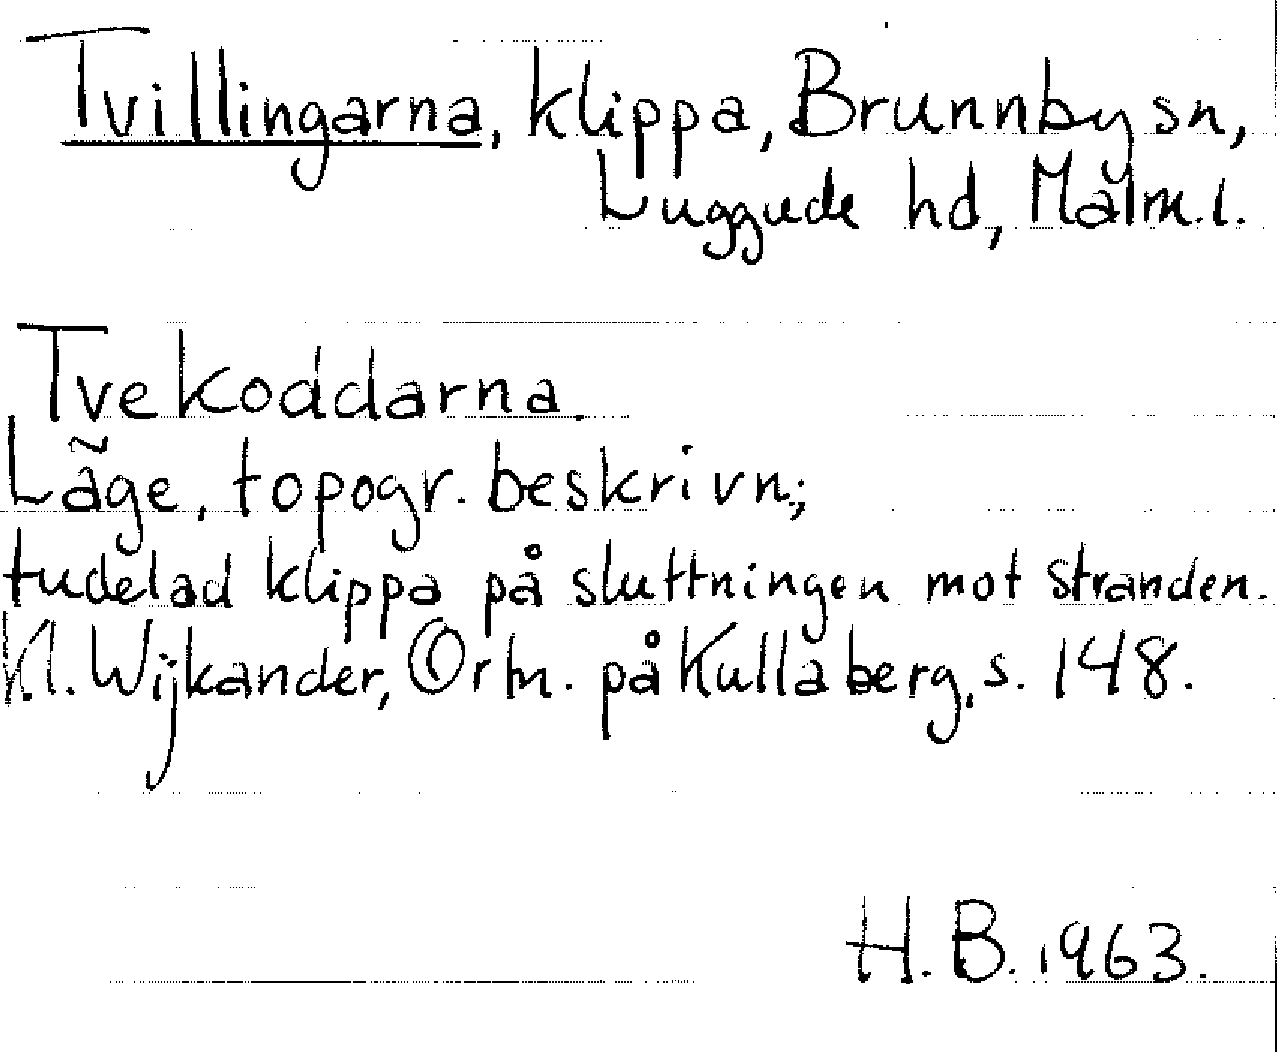 Tvillingarna, klippa, Brunnby sn,
Luggude hd, Malm.l.
Tvekoddarna.
Läge, topogr. beskrivn.;
tudelad klippa på sluttningen mot stranden.
K.l. Wijkander, Ortn. på Kullaberg, s. 148.
H.B. 1963.